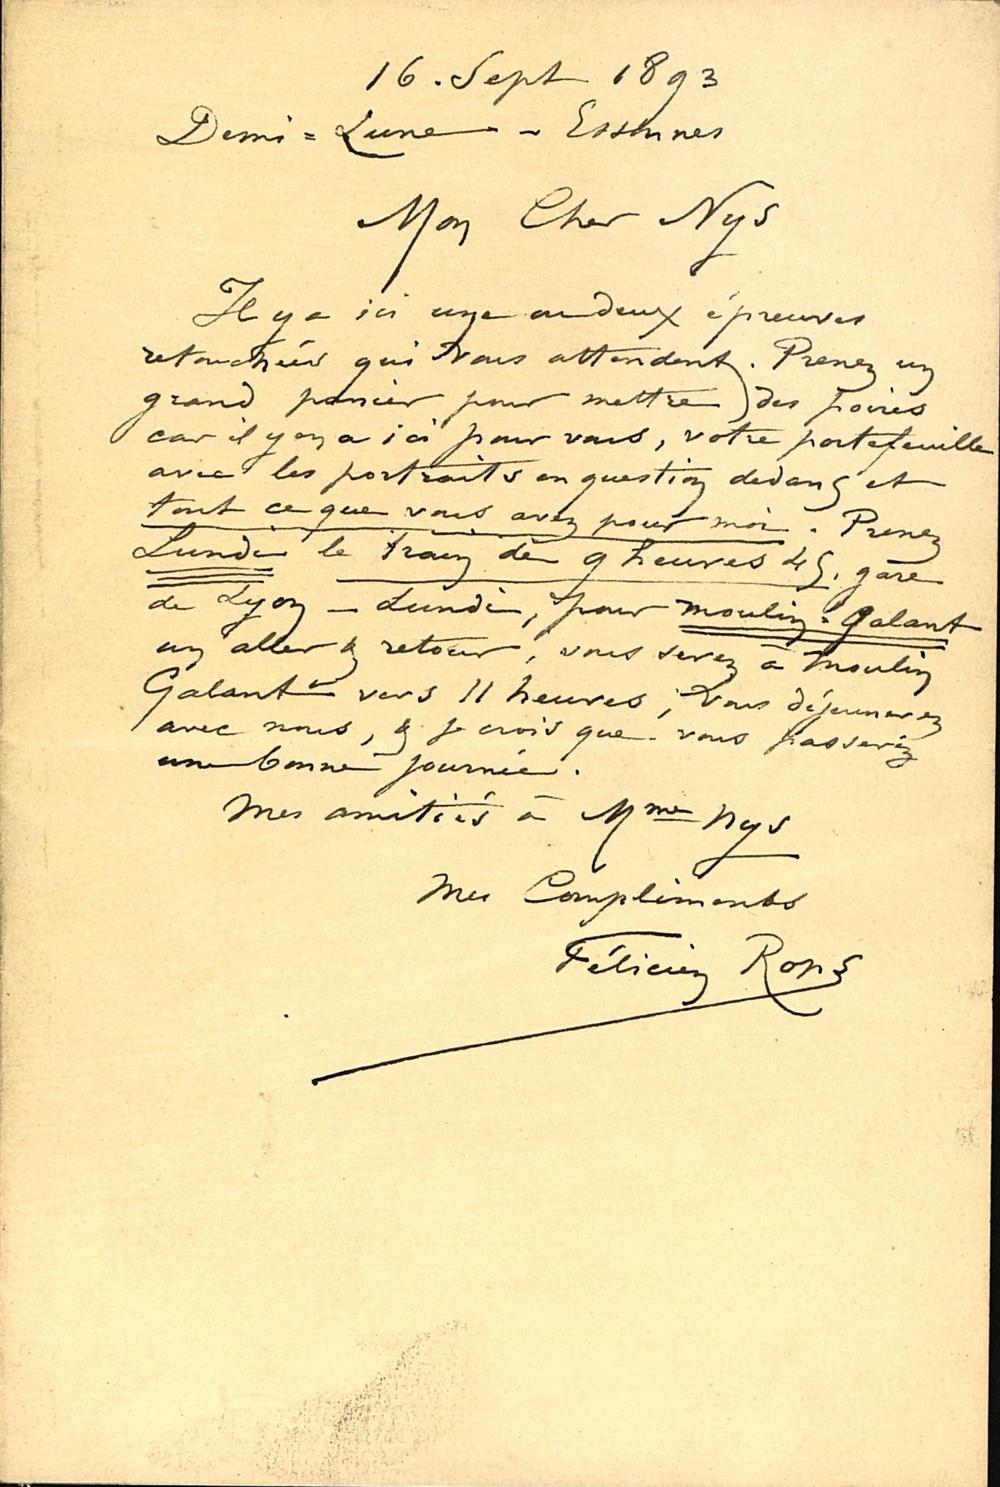 16. Sept 1893
Demi=Lune – Essonnes
Mon Cher Nys
Il y a ici une ou deux épreuves
retouchées qui vous attendent. Prenez un
grand panier pour mettre des poires
car il y en a ici pour vous, votre portefeuille
avec les portraits en question dedans et
tout ce que vous avez pour moi. Prenez
Lundi le train de 9 heures 45. gare
de Lyon – Lundi, pour Moulin-Galant
un aller & retour, vous serez à Moulin
Galant vers 11 heures; Vous déjeunerez
avec nous, & je crois que vous passerez
une bonne journée.
Mes amitiés à Mme Nys
Mes Compliments
Félicien Rops